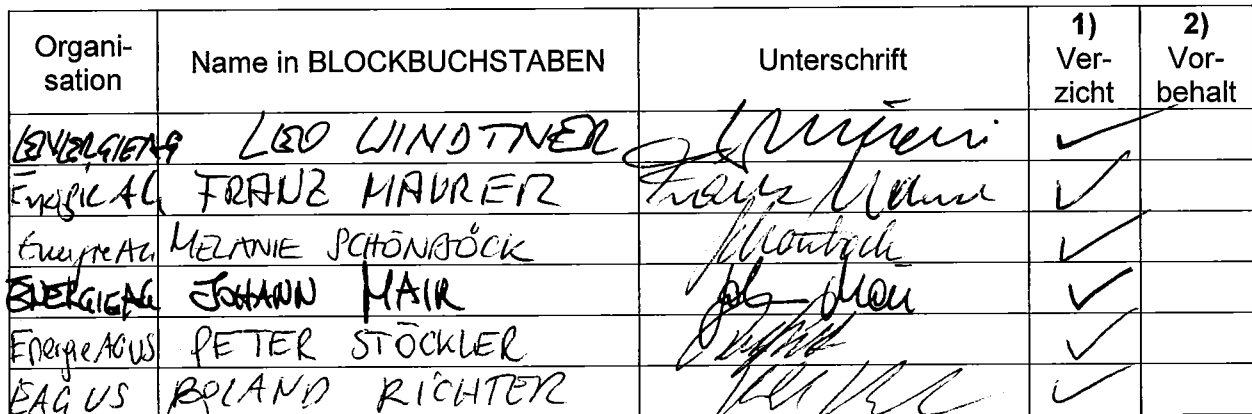 Organi-sation Name in BLOCKBUCHSTABEN Unterschrift 1) Ver-zicht 2) Vor-behalt
ENERGIEAG LEO WINDTNER ✓
Energie AG FRANZ MAURER Franz Maurer ✓
Energie AG MELANIE SCHÖNBÖCK ✓
ENERGIEAG JOHANN MAIR ✓
Energie AG US PETER STÖCKLER ✓
EAG US ROLAND RICHTER ✓